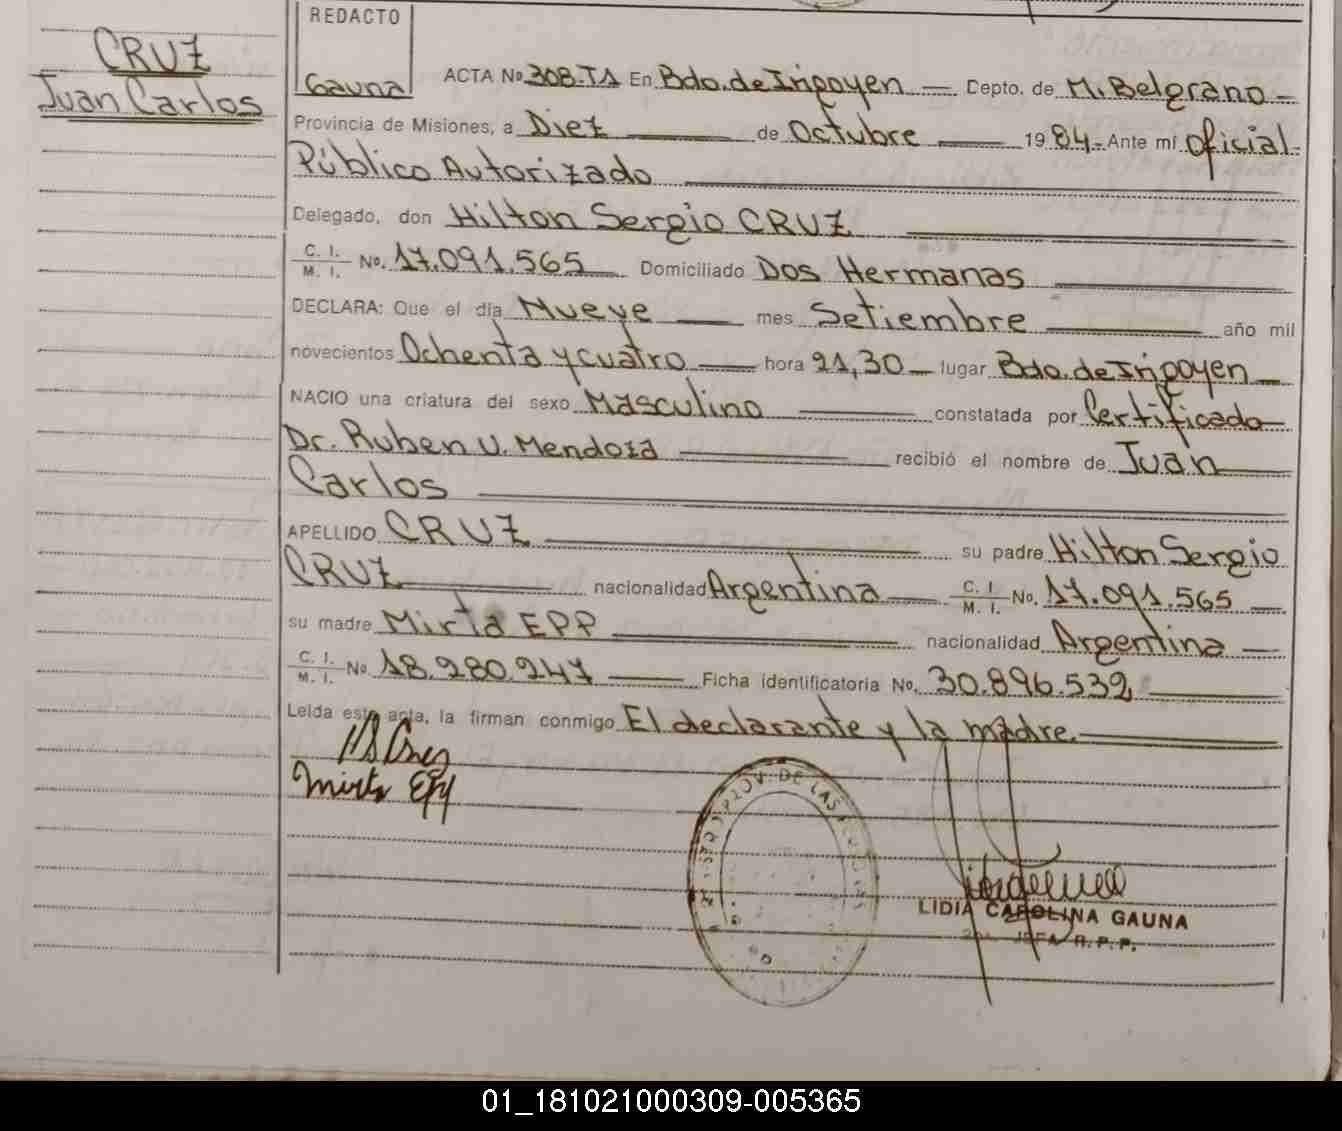 CRUZ
Juan Carlos
REDACTO
Gauna
ACTA No 308.T1 En Bdo. de Irigoyen — Depto. de M. Belgrano —
Provincia de Misiones, a Diez — de Octubre — 19 84.- Ante mí Oficial
Público Autorizado
Delegado, don Hilton Sergio CRUZ
C. I. M. I. No. 17.091.565 Domiciliado Dos Hermanas
DECLARA: Que el día Nueve — mes Setiembre — año mil
novecientos Ochenta y cuatro — hora 21,30 — lugar Bdo. de Irigoyen —
NACIO una criatura del sexo Masculino — constatada por Certificado
Dr. Ruben U. Mendoza — recibió el nombre de Juan
Carlos
APELLIDO CRUZ — su padre Hilton Sergio
CRUZ — nacionalidad Argentina — C. I. M. I. No. 17.091.565 —
su madre Mirta EPP — nacionalidad Argentina —
C. I. M. I. No 18.280.247 — Ficha identificatoria No. 30.896.532
Leída esta acta, la firman conmigo El declarante y la madre.
H S Cruz
Mirta Epp
PROV. DE LAS
LIDIA CAROLINA GAUNA
JEFA R. P. P.
01_181021000309-005365